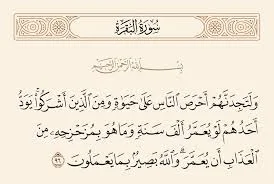 سُورَةُ البَقَرَةِ
بِسْمِ اللَّهِ الرَّحْمَٰنِ الرَّحِيمِ
وَلَتَجِدَنَّهُمْ أَحْرَصَ النَّاسِ عَلَىٰ حَيَوٰةٍ وَمِنَ الَّذِينَ أَشْرَكُوا۟ ۚ يَوَدُّ
أَحَدُهُمْ لَوْ يُعَمَّرُ أَلْفَ سَنَةٍ وَمَا هُوَ بِمُزَحْزِحِهِۦ مِنَ
الْعَذَابِ أَن يُعَمَّرَ ۗ وَاللَّهُ بَصِيرٌۢ بِمَا يَعْمَلُونَ ٩٦